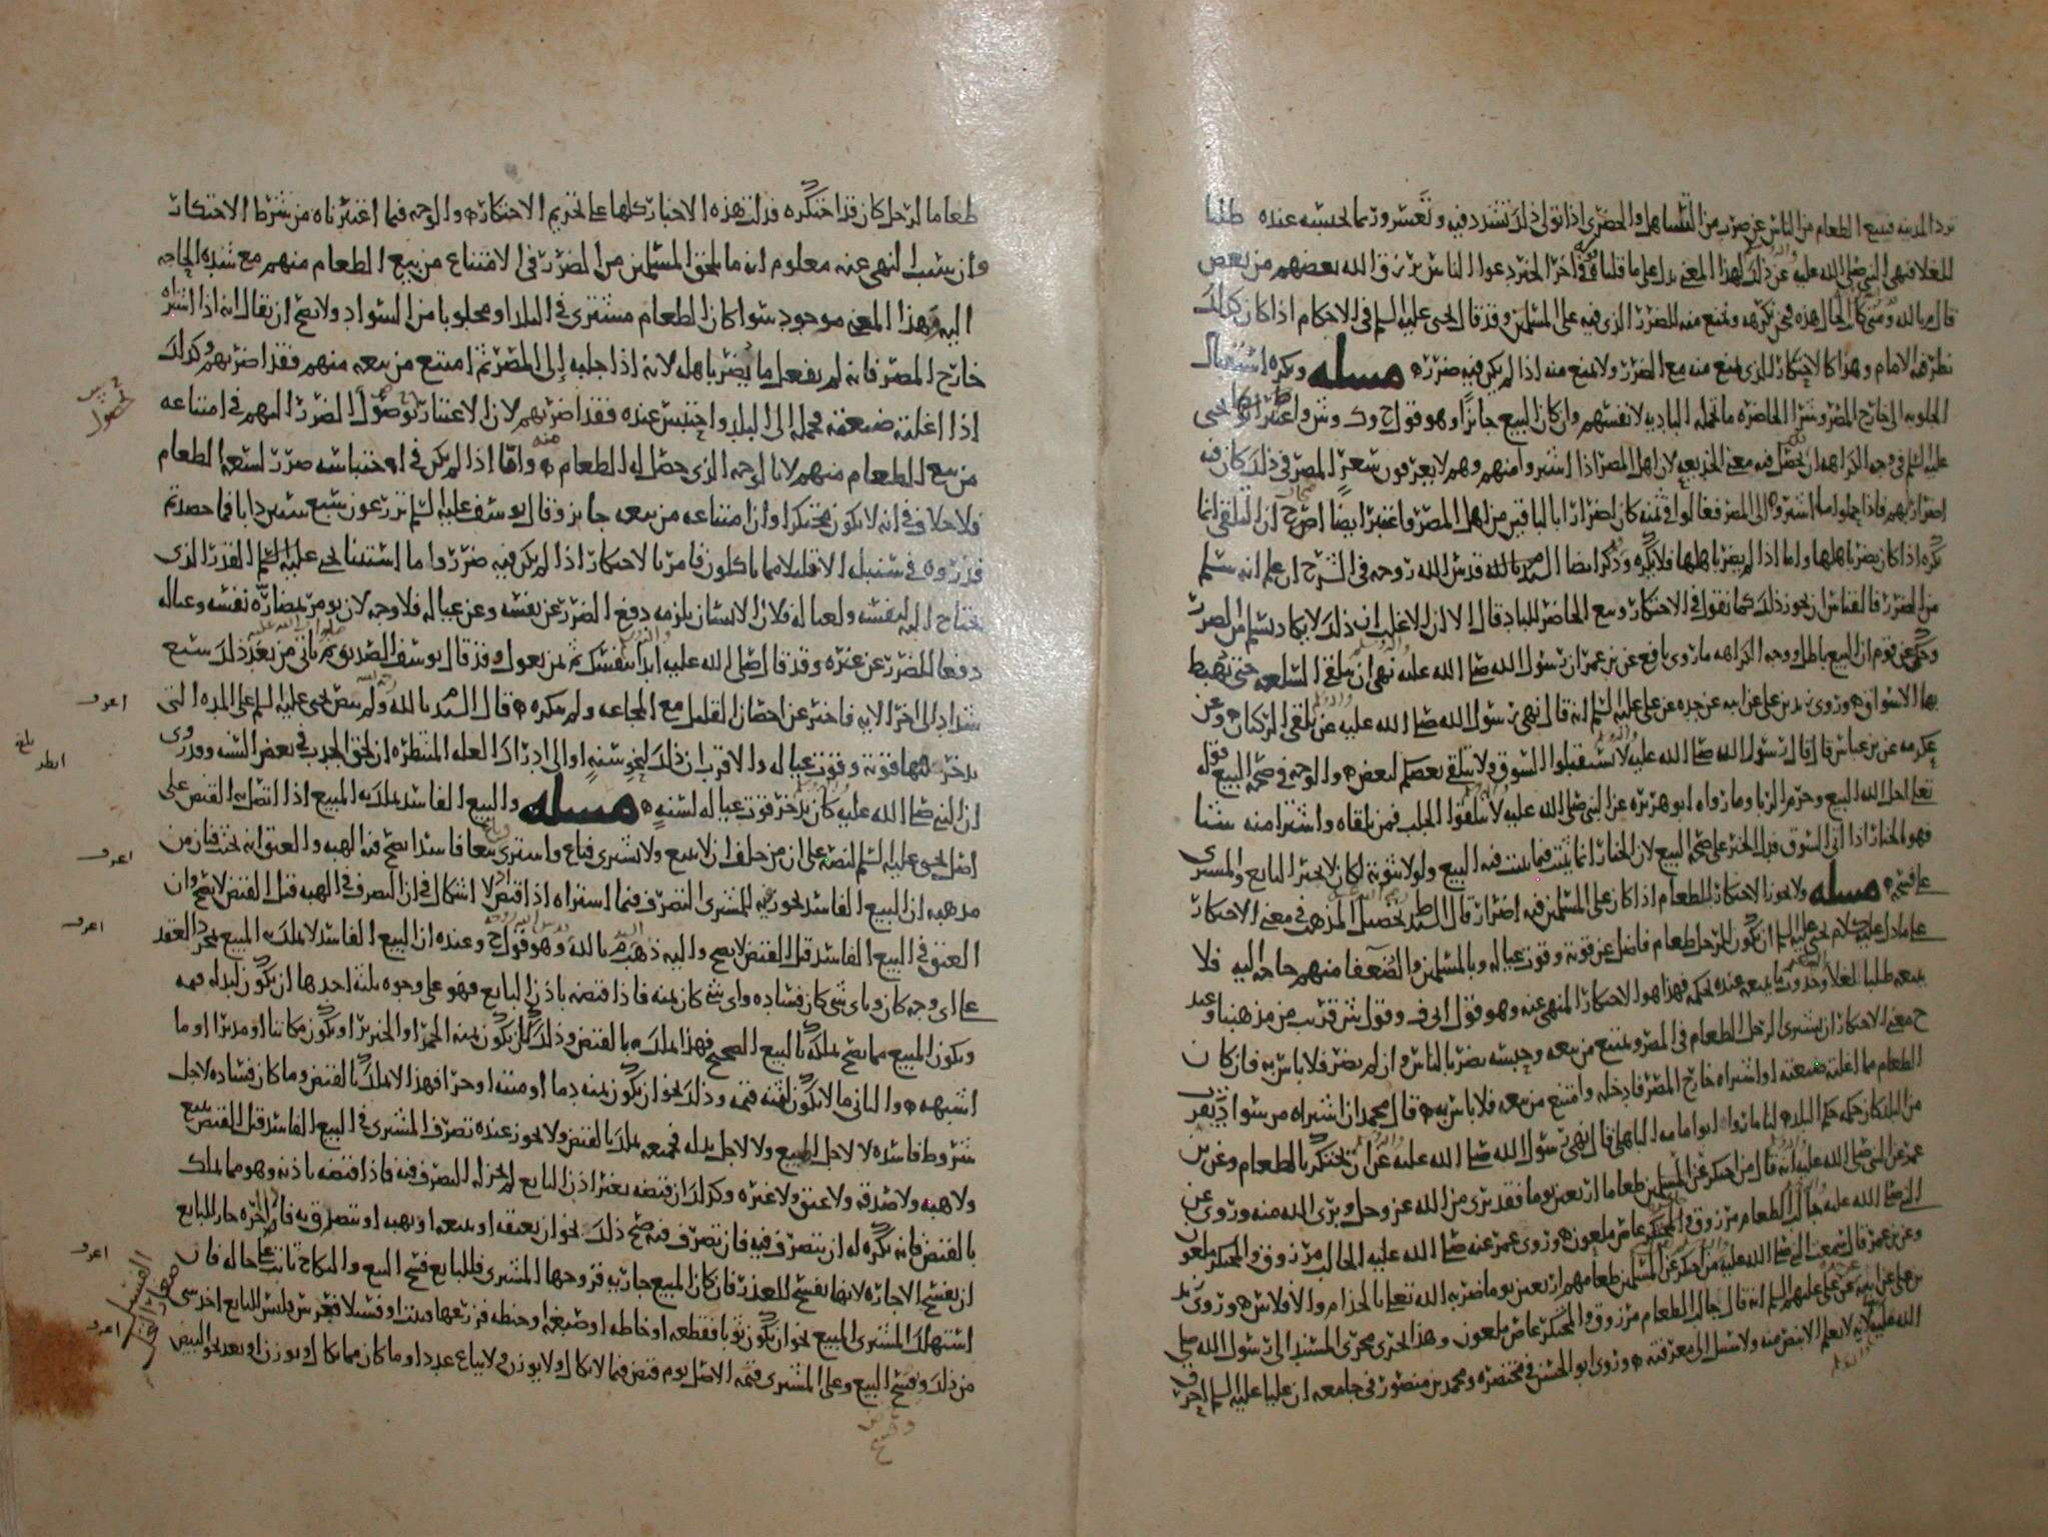 ترد المدينة فيبيع الطعام من الناس عن ضرب من التساهل والحضري اذا تولى ذلك تشدد فيه وتعسر وربما يحبسه عنده طلبا
للغلا فنهى النبي صلى الله عليه عن ذلك لهذا المعنى يدل على ما قلنا قوله في اخر الخبر دعوا الناس يرزق الله بعضهم من بعض
قال م بالله ومتى كان الحال هذه فنحن نكرهه ونمنع منه للضرر الذي فيه على المسلمين وقد قال يحيى عليه السلم في الاحكام اذا كان كذلك
نظر فيه الامام وهذا كالاحتكار الذي يمنع منه مع الضرر ولا يمنع منه اذا لم يكن فيه ضرر مسله ويكره استقبال
الجلوبه الى خارج المصر وشرا الحاضره ما تحمله الباديه لانفسهم وان كان البيع جائزا وهو قول ح وك وش واعتبر يحيى
عليه السلم في وجه الكراهه ان يحصل فيه معنى الخديعه لان اهل المصر اذا اشتروا منهم وهم لا يعرفون سعر المصر في ذلك كان فيه
اضرار بهم فاذا حملوا ما اشتروه الى المصر فغالوا في ثمنه كان اضرارا بالباقين من اهل المصر واعتبر ايضا اصحاب ح ان التلقي انما
يكره اذا كان يضر باهلها واما اذا لم يضر باهلها فلا يكره وذكر ايضا السيد م بالله قدس الله روحه في الشرح ان علم انه سلم
من الضرر فالقياس ان يجوز ذلك كما نقول في الاحتكار وبيع الحاضر للباد قال الا ان الاغلب ان ذلك لا يكاد يسلم من الضرر
وحكي عن قوم ان البيع باطل ووجه الكراهه ما روى نافع عن بن عمر ان رسول الله صلى الله عليه نهى ان يتلقى السلعه حتى تهبط
بها الاسواق وروى زيد بن علي عن ابيه عن جده عن علي عليه السلم انه قال نهى رسول الله صلى الله عليه عن تلقي الركبان وعن
عكرمه عن بن عباس قال قال رسول الله صلى الله عليه لا تستقبلوا السوق ولا يتلقى بعضكم لبعض والوجه في صحه البيع قوله
تعالى احل الله البيع وحرم الربا وما رواه ابو هريره عن النبي صلى الله عليه لا تتلقوا الجلب فمن تلقاه واشترا منه شيئا
فهو بالخيار اذا اتى السوق فدل الخبر على صحه البيع لان الخيار انما يثبت فيما يثبت فيه البيع ولولا ثبوته لكان لا يخير البايع والمشتري
على فسخه مسله ولا يجوز الاحتكار للطعام اذا كان على المسلمين فيه اضرار قال السيد ط تحصيل المذهب في معنى الاحتكار
على ما دل عليه كلام يحيى عليه السلم ان يكون للرجل طعام فاضل عن قوته وقوت عياله وبالمسلمين والضعفا منهم حاجه اليه فلا
يبيعه طلبا للغلا وحدوث ما يبيعه عنده بحكمه فهذا هو الاحتكار المنهي عنه وهو قول ابي ف وقول ش قريب من مذهبنا وعند
ح معنى الاحتكار ان يشتري الرجل الطعام في المصر ويمتنع من بيعه وحبسه يضر بالناس وان لم يضر فلا باس به فان كان
الطعام مما اغلته ضيعته او اشتراه خارج المصر فادخله وامتنع من بيعه فلا باس به قال محمد ان اشتراه من سواد يقرب
من البلد كان حكمه حكم البلد لنا ما روا ابو امامه الباهلي قال نهى رسول الله صلى الله عليه عن ان يحتكر الطعام وعن بن
عمر عن النبي صلى الله عليه انه قال من احتكر على المسلمين طعاما اربعين يوما فقد بري من الله عز وجل وبري الله منه وروي عن
النبي صلى الله عليه جالب الطعام مرزوق والمحتكر عاص ملعون وروى عمر عنه صلى الله عليه الجالب مرزوق والمحتكر ملعون
وعن بن عمر قال سمعت النبي صلى الله عليه من احتكر على المسلمين طعامهم اربعين يوما ضربه الله تعالى بالجذام والافلاس وروى زيد
بن علي عن ابيه عن علي عليهم السلم انه قال جالب الطعام مرزوق والمحتكر عاص ملعون وهذا يجري مجرى المسند الى رسول الله صلى
الله عليه لانه لا يعلم الا بنص منه ولا سبيل الى معرفته وروى ابو الحسن في مختصره ومحمد بن منصور في جامعه ان عليا عليه السلم احرق
طعاما لرجل كان قد احتكره فدلت هذه الاخبار كلها على تحريم الاحتكار والوجه فيما اعتبرناه من شرط الاحتكار
وان سبب النهي عنه معلوم انه ما يلحق المسلمين من الضرر في الامتناع من بيع الطعام منهم مع شده الحاجه
اليه وهذا المعنى موجود سوا كان الطعام مشترى في البلد او مجلوبا من السواد ولا يصح ان يقال انه اذا اشتراه
خارج المصر فانه لم يفعل ما يضر باهله لانه اذا جلبه إلى المصر ثم امتنع من بيعه منهم فقد اضر بهم وكذلك
اذا اغلته ضيعته فحمله الى البلد واحتبس عنده فقد اضر بهم لان الاعتبار بوصول الضرر اليهم في امتناعه
من بيع الطعام منهم لا بالوجه الذي حصل له الطعام منه واما اذا لم يكن في احتباسه ضرر لسعه الطعام
فلا خلاف في انه لا يكون محتكرا وان امتناعه من بيعه جايز وقال يوسف عليه السلم تزرعون سبع سنين دابا فما حصدتم
فذروه في سنبله الا قليلا مما ياكلون فامر بالاحتكار اذا لم يكن فيه ضرر واما استثنا يحيى عليه السلم القدر الذي
يحتاج اليه لنفسه ولعياله فلان الانسان يلزمه دفع الضرر عن نفسه وعن عياله فلا وجه لان يومر بمضاره نفسه وعياله
دفعا للضرر عن غيره وقد قال صلى الله عليه ابدا بنفسك ثم بمن تعول وقد قال يوسف الصديق صلوات الله عليه ثم ياتي من بعد ذلك سبع
شداد الى اخر الايه فاخبر عن احصان القليل مع المجاعه ولم ينكره قال السيد م بالله ولم ينص يحيى عليه السلم على المده التي
يدخر فيها قوته وقوت عياله والاقرب ان ذلك لنحو سنه او الى ادراك العله المنتظره ان لحق الجدب في بعض السنه وقد روي
ان النبي صلى الله عليه كان يدخر قوت عياله لسنه مسله والبيع الفاسد يملك به المبيع اذا اتصل به القبض على
اصل يحيى عليه السلم لنصه على ان من حلف ان لا يبيع ولا يشتري فباع واشترى بيعا فاسدا يصح فيه الهبه والعتق انه يحنث فبان من
مذهبه ان البيع الفاسد يجوز فيه للمشتري التصرف فيما اشتراه اذا قبض ولا اشكال في ان التصرف في الهبه قبل القبض لا يصح وان
العتق في البيع الفاسد قبل القبض لا يصح واليه ذهب السيد م بالله وهو قول ح وعنده ان البيع الفاسد لا يملك به المبيع بمجرد العقد
على اي وجه كان وباي شي كان فساده واي شي كان ثمنه فاذا قبضه باذن البايع فهو على وجوه ثلثه احدها ان يكون لبدله قيمه
ويكون المبيع مما يصح تملكه بالبيع الصحيح فهذا يملك به بالقبض وذلك كان يكون ثمنه الخمر او الخنزير او يكون مكاتبا او مدبرا او ما
اشبهه والثاني ما لا يكون لثمنه قيمه وذلك نحو ان يكون ثمنه دما او ميته او حرا فهذا لا يملك بالقبض وما كان فساده لاجل
شروط فاسده لا لاجل المبيع ولا لاجل بدله فجميعه يملك بالقبض ولا يجوز عنده تصرف المشتري في البيع الفاسد قبل القبض ببيع
ولا هبه ولا صدقه ولا عتق ولا غيره وكذلك ان قبضه بغير اذن البايع لم يجز له التصرف فيه فاذا قبضه باذنه وهو مما يملك
بالقبض فانه يكره له ان يتصرف فيه فان تصرف فيه صح ذلك نحو ان يعتقه او يبيعه او يهبه او يتصدق به فان اجره جاز للبايع
ان يفسخ الاجاره لانها تفسخ للعذر فان كان المبيع جاريه فزوجها المشتري فللبايع فسخ البيع والنكاح ثابت على حاله فان
استهلك المشتري المبيع نحو ان يكون ثوبا فقطعه او خاطه او صبغه او حنطه فزرعها فنبتت او فسيلا فغرس فليس للبايع اخذ شي
من ذلك وفسخ البيع وعلى المشتري قيمه الاصل يوم قبض فيما لا يكال ولا يوزن ولا يباع عددا وما كان مما يكال او يوزن او يعد نحو البيض